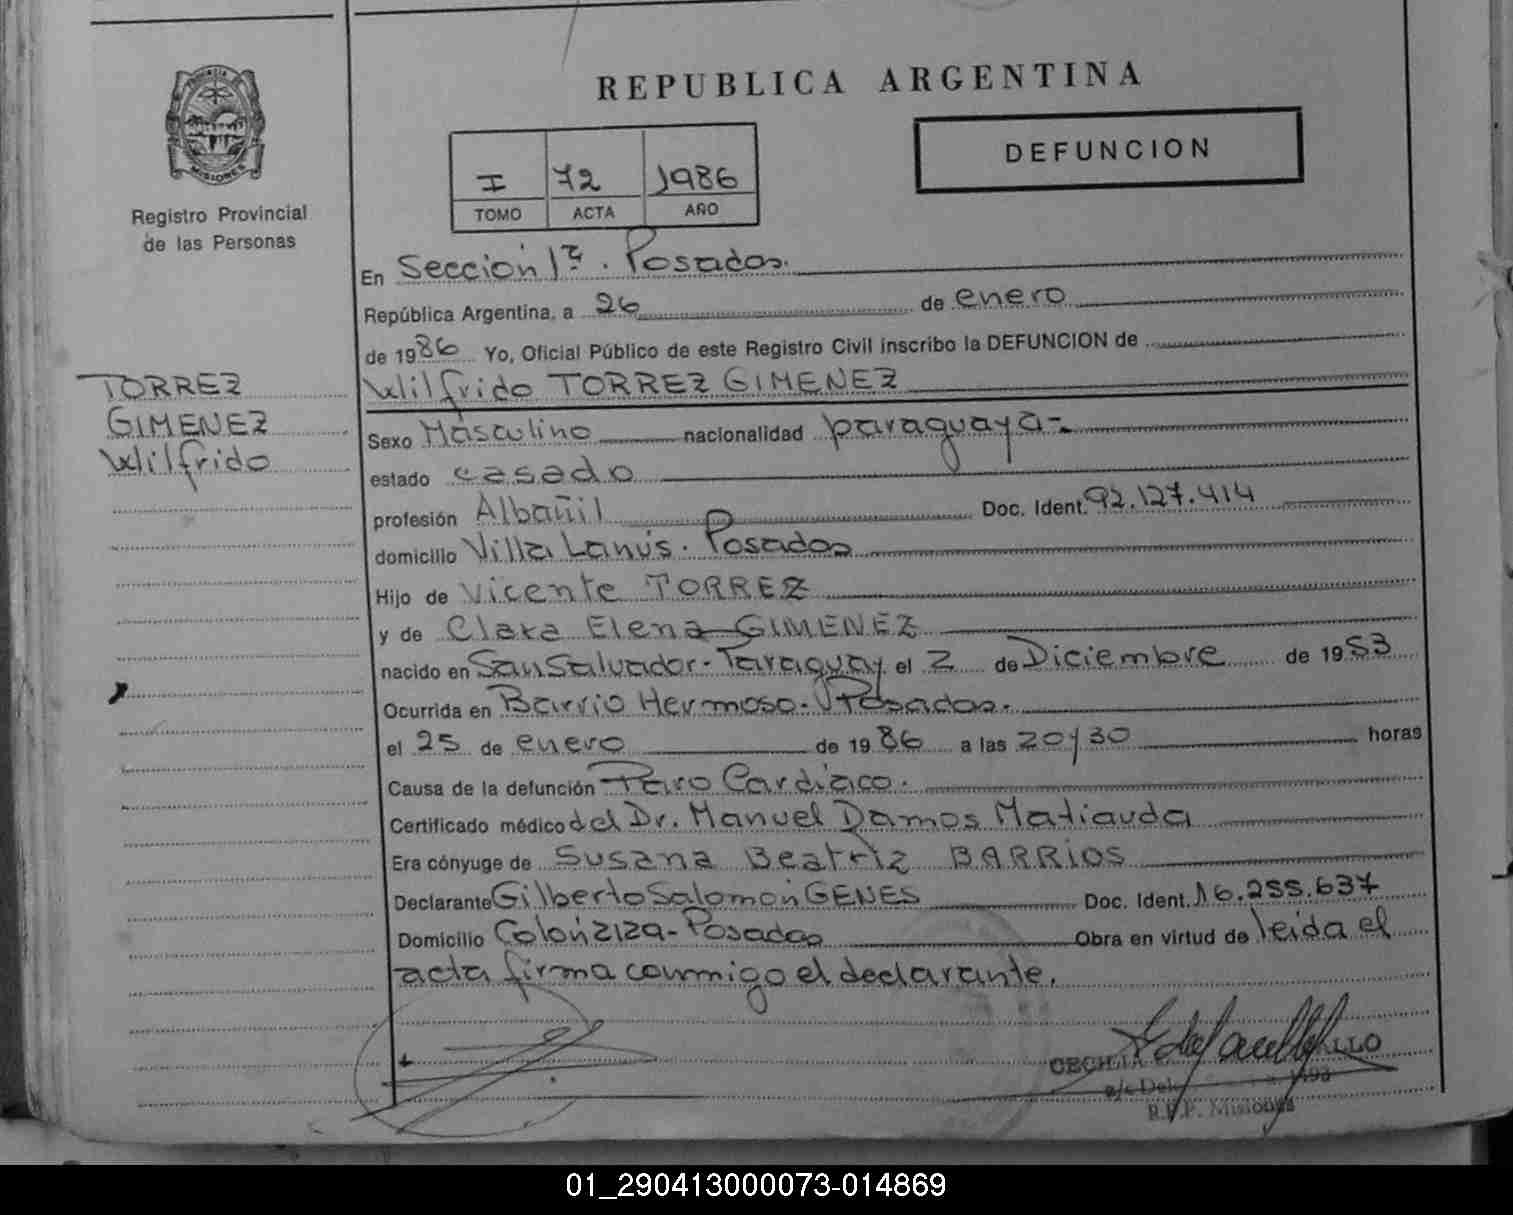 REPUBLICA ARGENTINA
PROVINCIA DE
MISIONES
Registro Provincial
de las Personas
I 72 1986
TOMO ACTA AÑO
DEFUNCION
En Sección 1ª. Posadas.
República Argentina, a 26 de enero
de 1986 Yo, Oficial Público de este Registro Civil inscribo la DEFUNCION de
Wilfrido TORREZ GIMENEZ
TORREZ
GIMENEZ
Wilfrido
Sexo Masculino nacionalidad paraguaya-
estado casado
profesión Albañil Doc. Ident. 92.127.414
domicilio Villa Lanús. Posadas
Hijo de Vicente TORREZ
y de Clara Elena GIMENEZ
nacido en San Salvador-Paraguay el 2 de Diciembre de 1953
Ocurrida en Barrio Hermoso- Posadas.
el 25 de enero de 1986 a las 20/30 horas
Causa de la defunción Paro Cardíaco.
Certificado médico del Dr. Manuel Damos Matiauda
Era cónyuge de Susana Beatriz BARRIOS
Declarante Gilberto Salomón GENES Doc. Ident. 16.255.637
Domicilio Posadas Obra en virtud de leída el
acta firma conmigo el declarante.
R.P.P. Misiones
01_290413000073-014869